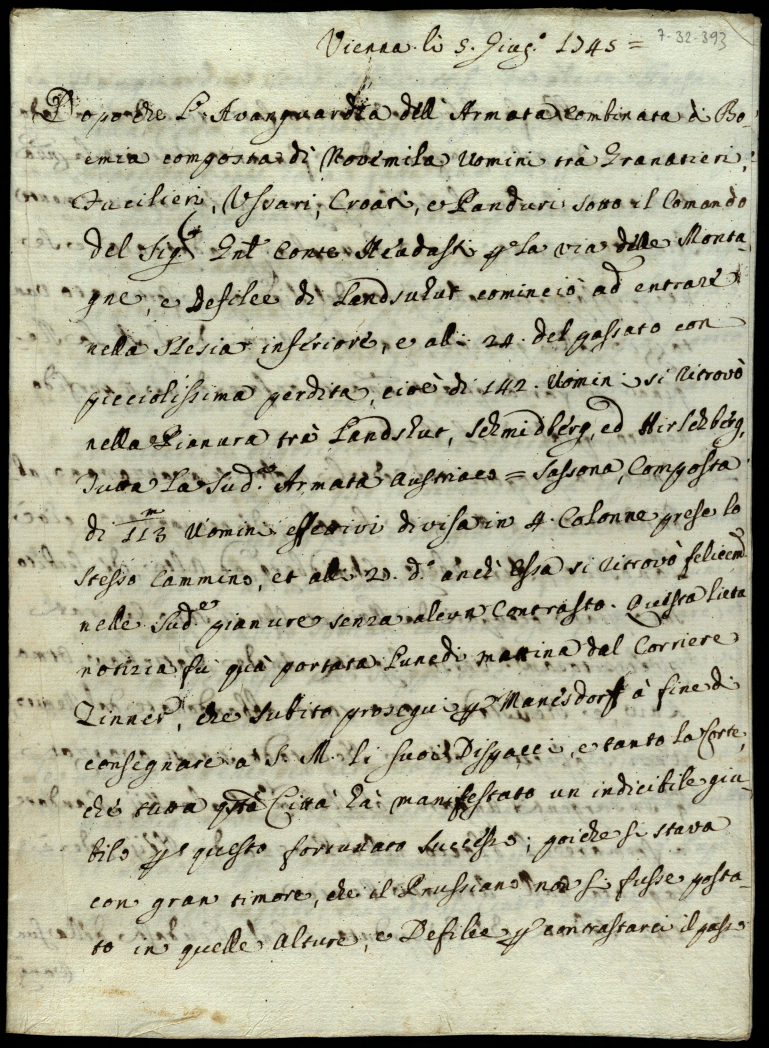 7-32-393
Vienna li 5. Giug.º 1745 =
Dopo che l'Avanguardia dell'Armata combinata di Bo-
emia composta di Novemila Uomini trà Granatieri,
Fucilieri, Usvari, Croati, e Panduri sotto il Comando
del Sig.r Gnl Conte Nadasti p la via delle Monta-
gne, e Desilee di Landshut cominciò ad entrare
nella Slesia inferiore, e alli 24. del passato con
picciolissima perdita, cioè di 142. Uomini si ritrovò
nella Pianura trà Landshut, Schmidberg, ed Hirschberg,
Tutta la Sud.a Armata Austriaco = Sassona, Composta
di 113 m Uomini effettivi divisa in 4. Colonne prese lo
stesso Cammino, et alli 29. d.º anch'Essa si ritrovò felicem.
nelle Sud.e pianure senza alcun Contrasto. Questa lieta
notizia fù quà portata Lunedi mattina dal Corriere
Zinner, che subito proseguì p Manesdorff à fine di
consegnare à S. M. li suoi Dispacci, e tanto la Corte,
chè tutta psta Città hà manifestato un indicibile giu-
bilo p questo fortunato Successo; poiche si stava
con gran timore, che il Prussiano non si fusse posta-
to in quelle Alture, e Defilée p contrastarci il passo